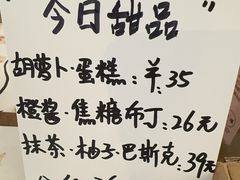 "今日甜品"
胡萝卜·蛋糕:羊:35
橙酱·焦糖布丁:26元
抹茶·柚子·巴斯克:39元